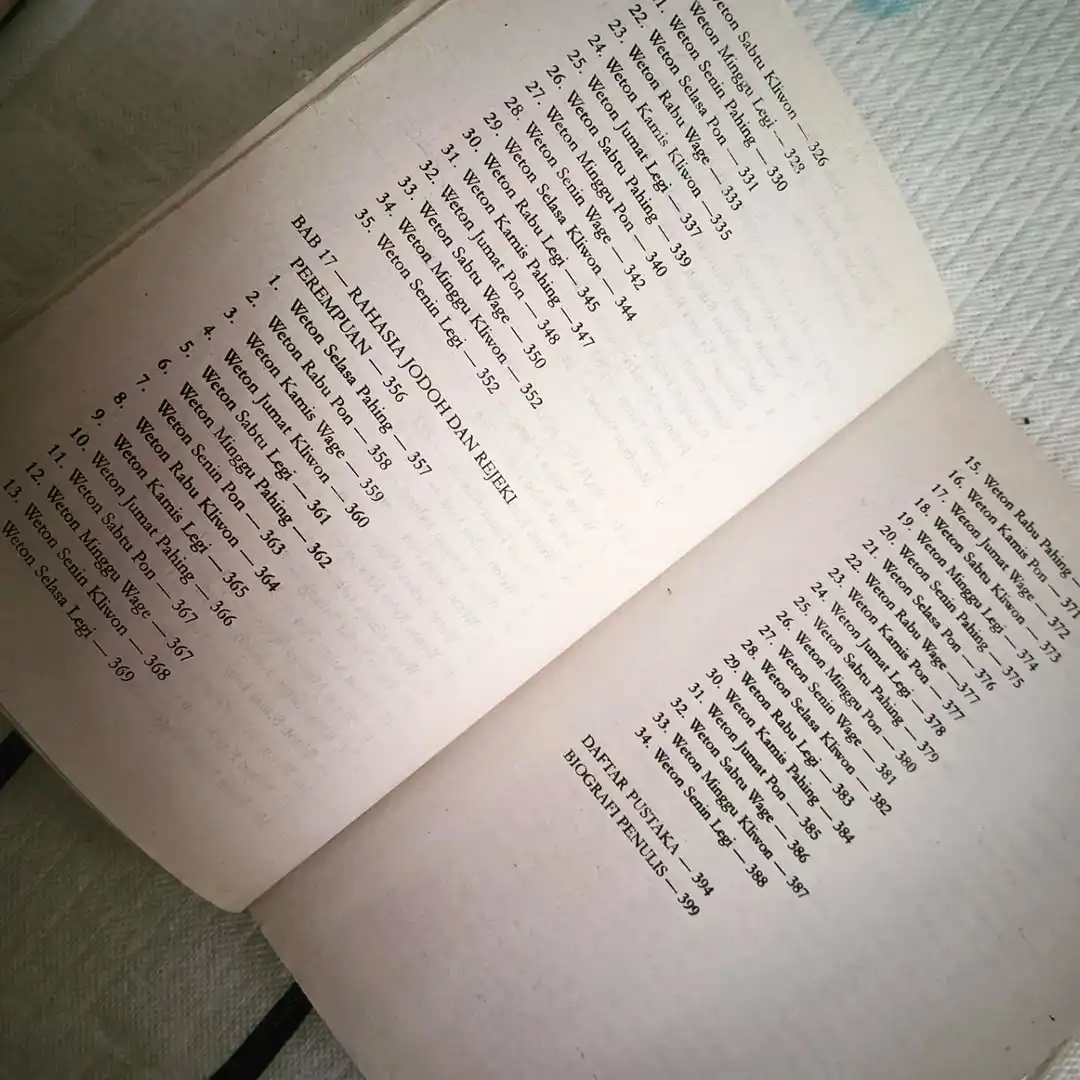 eton Sabtu Kliwon — 326
Weton Minggu Legi — 328
1. Weton Senin Pahing — 330
22. Weton Selasa Pon — 331
23. Weton Rabu Wage — 333
24. Weton Kamis Kliwon — 335
25. Weton Jumat Legi — 337
26. Weton Sabtu Pahing — 339
27. Weton Minggu Pon — 340
28. Weton Senin Wage — 342
29. Weton Selasa Kliwon — 344
30. Weton Rabu Legi — 345
31. Weton Kamis Pahing — 347
32. Weton Jumat Pon — 348
33. Weton Sabtu Wage — 350
34. Weton Minggu Kliwon — 352
35. Weton Senin Legi — 352
BAB 17 — RAHASIA JODOH DAN REJEKI
PEREMPUAN — 356
1. Weton Selasa Pahing — 357
2. Weton Rabu Pon — 358
3. Weton Kamis Wage — 359
4. Weton Jumat Kliwon — 360
5. Weton Sabtu Legi — 361
6. Weton Minggu Pahing — 362
7. Weton Senin Pon — 363
8. Weton Rabu Kliwon — 364
9. Weton Kamis Legi — 365
10. Weton Jumat Pahing — 366
11. Weton Sabtu Pon — 367
12. Weton Minggu Wage — 367
13. Weton Senin Kliwon — 368
Weton Selasa Legi — 369
15. Weton Rabu Pahing —
16. Weton Kamis Pon — 371
17. Weton Jumat Wage — 372
18. Weton Sabtu Kliwon — 373
19. Weton Minggu Legi — 374
20. Weton Senin Pahing — 375
21. Weton Selasa Pon — 376
22. Weton Rabu Wage — 377
23. Weton Kamis Pon — 377
24. Weton Jumat Legi — 378
25. Weton Sabtu Pahing — 379
26. Weton Minggu Pon — 380
27. Weton Senin Wage — 381
28. Weton Selasa Kliwon — 382
29. Weton Rabu Legi — 383
30. Weton Kamis Pahing — 384
31. Weton Jumat Pon — 385
32. Weton Sabtu Wage — 386
33. Weton Minggu Kliwon — 387
34. Weton Senin Legi — 388
DAFTAR PUSTAKA — 394
BIOGRAFI PENULIS — 399